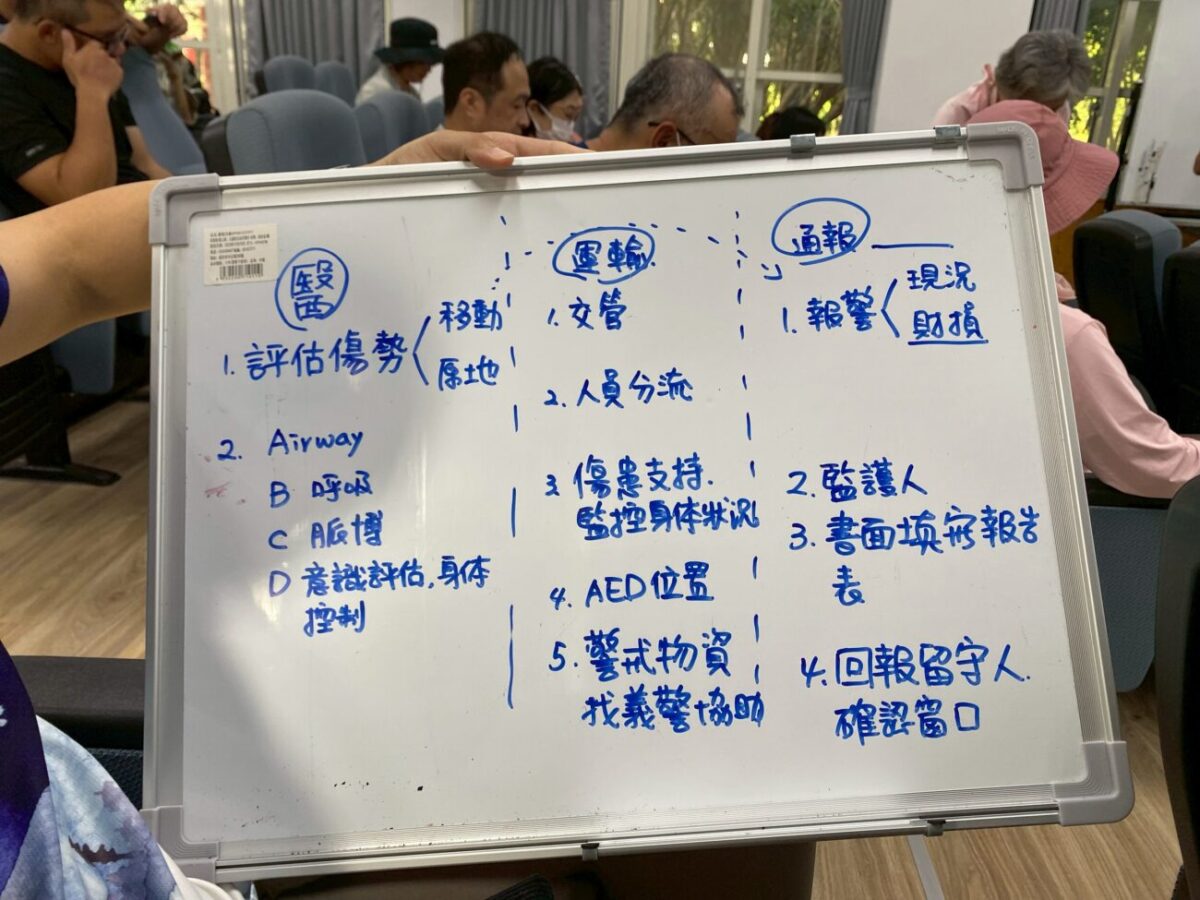 醫
1. 評估傷勢
移動
原地
2. Airway
B 呼吸
C 脈博
D 意識評估,身体
控制
運輸.
1. 交管
2. 人員分流
3. 傷患支持.
監控身体狀況
4. AED位置
5. 警戒物資
找義警協助
通報
1. 報警
現況
財損
2. 監護人
3. 書面填寫報告
表
4. 回報留守人.
確認窗口